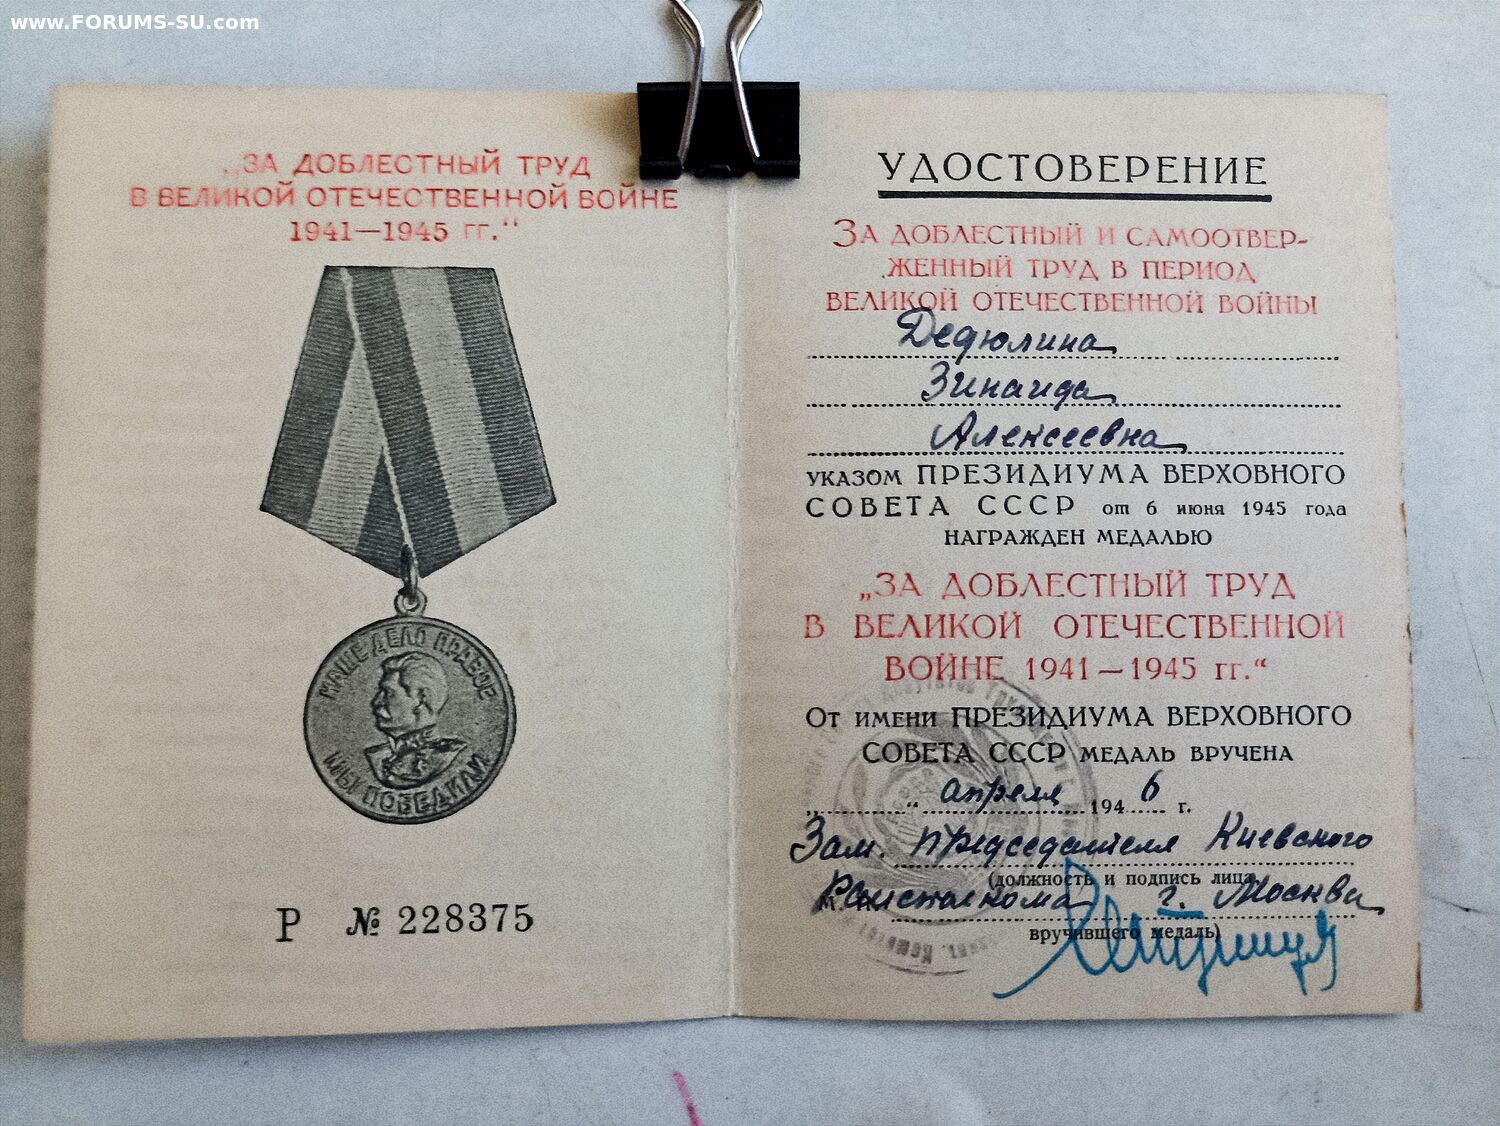 www.FORUMS-SU.com
„ЗА ДОБЛЕСТНЫЙ ТРУД
В ВЕЛИКОЙ ОТЕЧЕСТВЕННОЙ ВОЙНЕ
1941—1945 гг.“
НАШЕ ДЕЛО ПРАВОЕ
МЫ ПОБЕДИЛИ
Р № 228375
УДОСТОВЕРЕНИЕ
ЗА ДОБЛЕСТНЫЙ И САМООТВЕР-
ЖЕННЫЙ ТРУД В ПЕРИОД
ВЕЛИКОЙ ОТЕЧЕСТВЕННОЙ ВОЙНЫ
Дедюлина
Зинаида
Алексеевна
УКАЗОМ ПРЕЗИДИУМА ВЕРХОВНОГО
СОВЕТА СССР от 6 июня 1945 года
НАГРАЖДЕН МЕДАЛЬЮ
„ЗА ДОБЛЕСТНЫЙ ТРУД
В ВЕЛИКОЙ ОТЕЧЕСТВЕННОЙ
ВОЙНЕ 1941—1945 гг.“
ОТ ИМЕНИ ПРЕЗИДИУМА ВЕРХОВНОГО
СОВЕТА СССР МЕДАЛЬ ВРУЧЕНА
„ “ апреля 1946 г.
Зам. председателя Киевского
(должность и подпись лица,
Райисполкома г. Москвы
вручившего медаль)